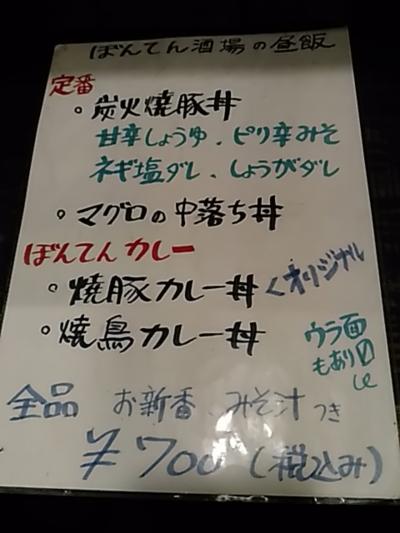 ぼんてん酒場の昼飯
定番
。炭火焼豚丼
甘辛しょうゆ、ピリ辛みそ
ネギ塩ダレ、しょうがダレ
。マグロの中落ち丼
ぼんてんカレー
。焼豚カレー丼くオリジナル
。焼鳥カレー丼
ウラ面
もあり〼
全品 お新香、みそ汁つき
¥700(税込み)